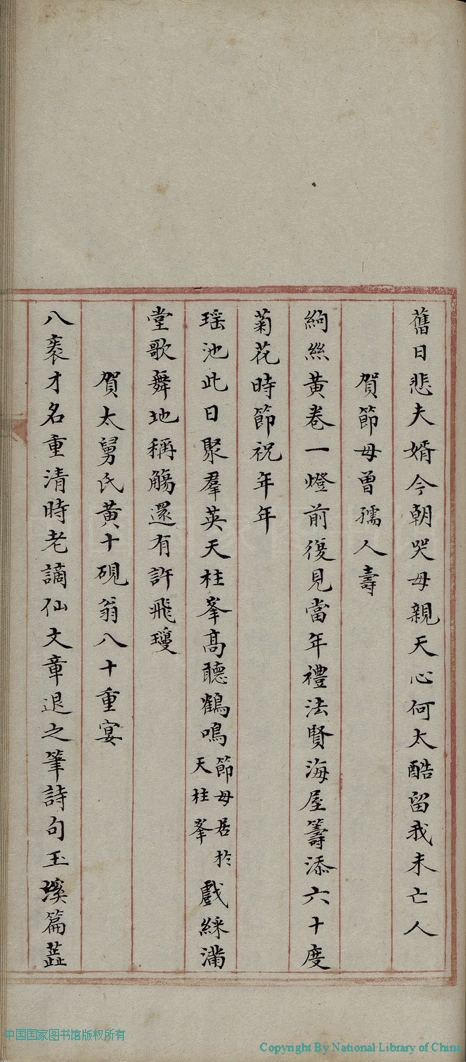 舊日悲夫婿今朝哭母親天心何太酷留我未亡人
賀節母曾孺人壽
絢絲黃卷一燈前復見當年禮法賢海屋籌添六十度
菊花時節祝年年
瑶池此日聚羣英天柱峯高聽鶴鳴節母居於天柱峯戲綵滿
堂歌舞地稱觴還有許飛瓊
賀太舅氏黃十硯翁八十重宴
八袠才名重清時老謫仙文章退之筆詩句玉溪篇蓝
中国国家图书馆版权所有
Copyright By National Library of China